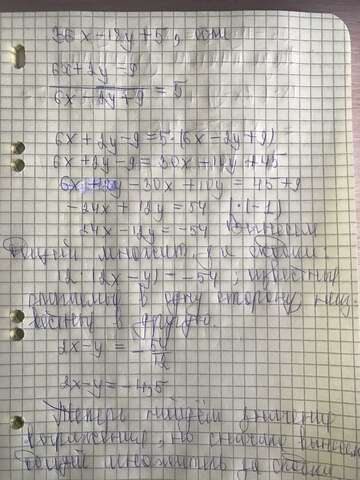 36x-18y+5, если
6x+2y-9
6x-2y+9 = 5
6x+2y-9=5·(6x-2y+9)
6x+2y-9=30x-10y+45
6x+2y-30x+10y=45+9
-24x+12y=54 |·(-1)
24x-12y=-54 Вынесем
общий множит. за скобки:
12·(2x-y)=-54, известные
в одну сторону, неиз-
вестные в другую.
2x-y = -54/12
2x-y=-4,5
Теперь найдём значение
выражения, но сначала вынесем
общий множитель за скобки